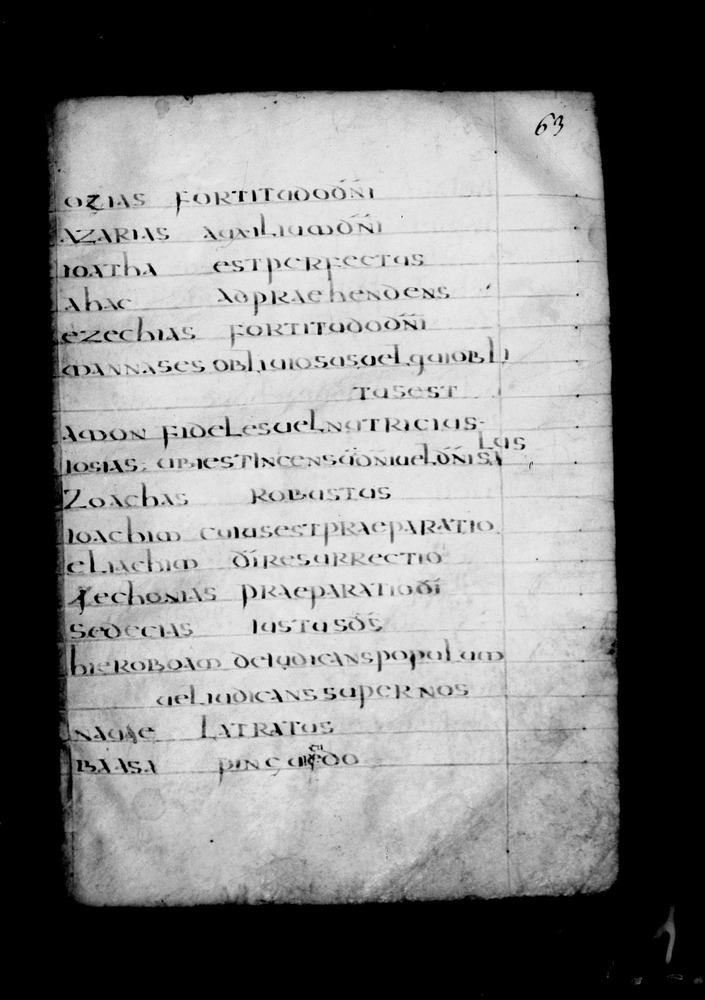 63
OZIAS FORTITUDO DNI
AZARIAS AUXILIUM DNI
IOATHA EST PERFECTUS
AHAC ADPRAEHENDENS
EZECHIAS FORTITUDO DNI
MANNASES OBLIUIOSUS UEL QUI OBLI
TUS EST
AMON FIDELES UEL NUTRICIUS
LUS
IOSIAS UBI EST INCENSU DNI UEL DNI SA
ZOACHAS ROBUSTUS
IOACHIM CUIUS EST PRAEPARATIO
ELIACHIM DI RESURRECTIO
IECHONIAS PRAEPARATIO DI
SEDECIAS IUSTUS DS
HIEROBOAM DEIUDICANS POPULUM
UEL IUDICANS SUPER NOS
LATRATUS
BAASA